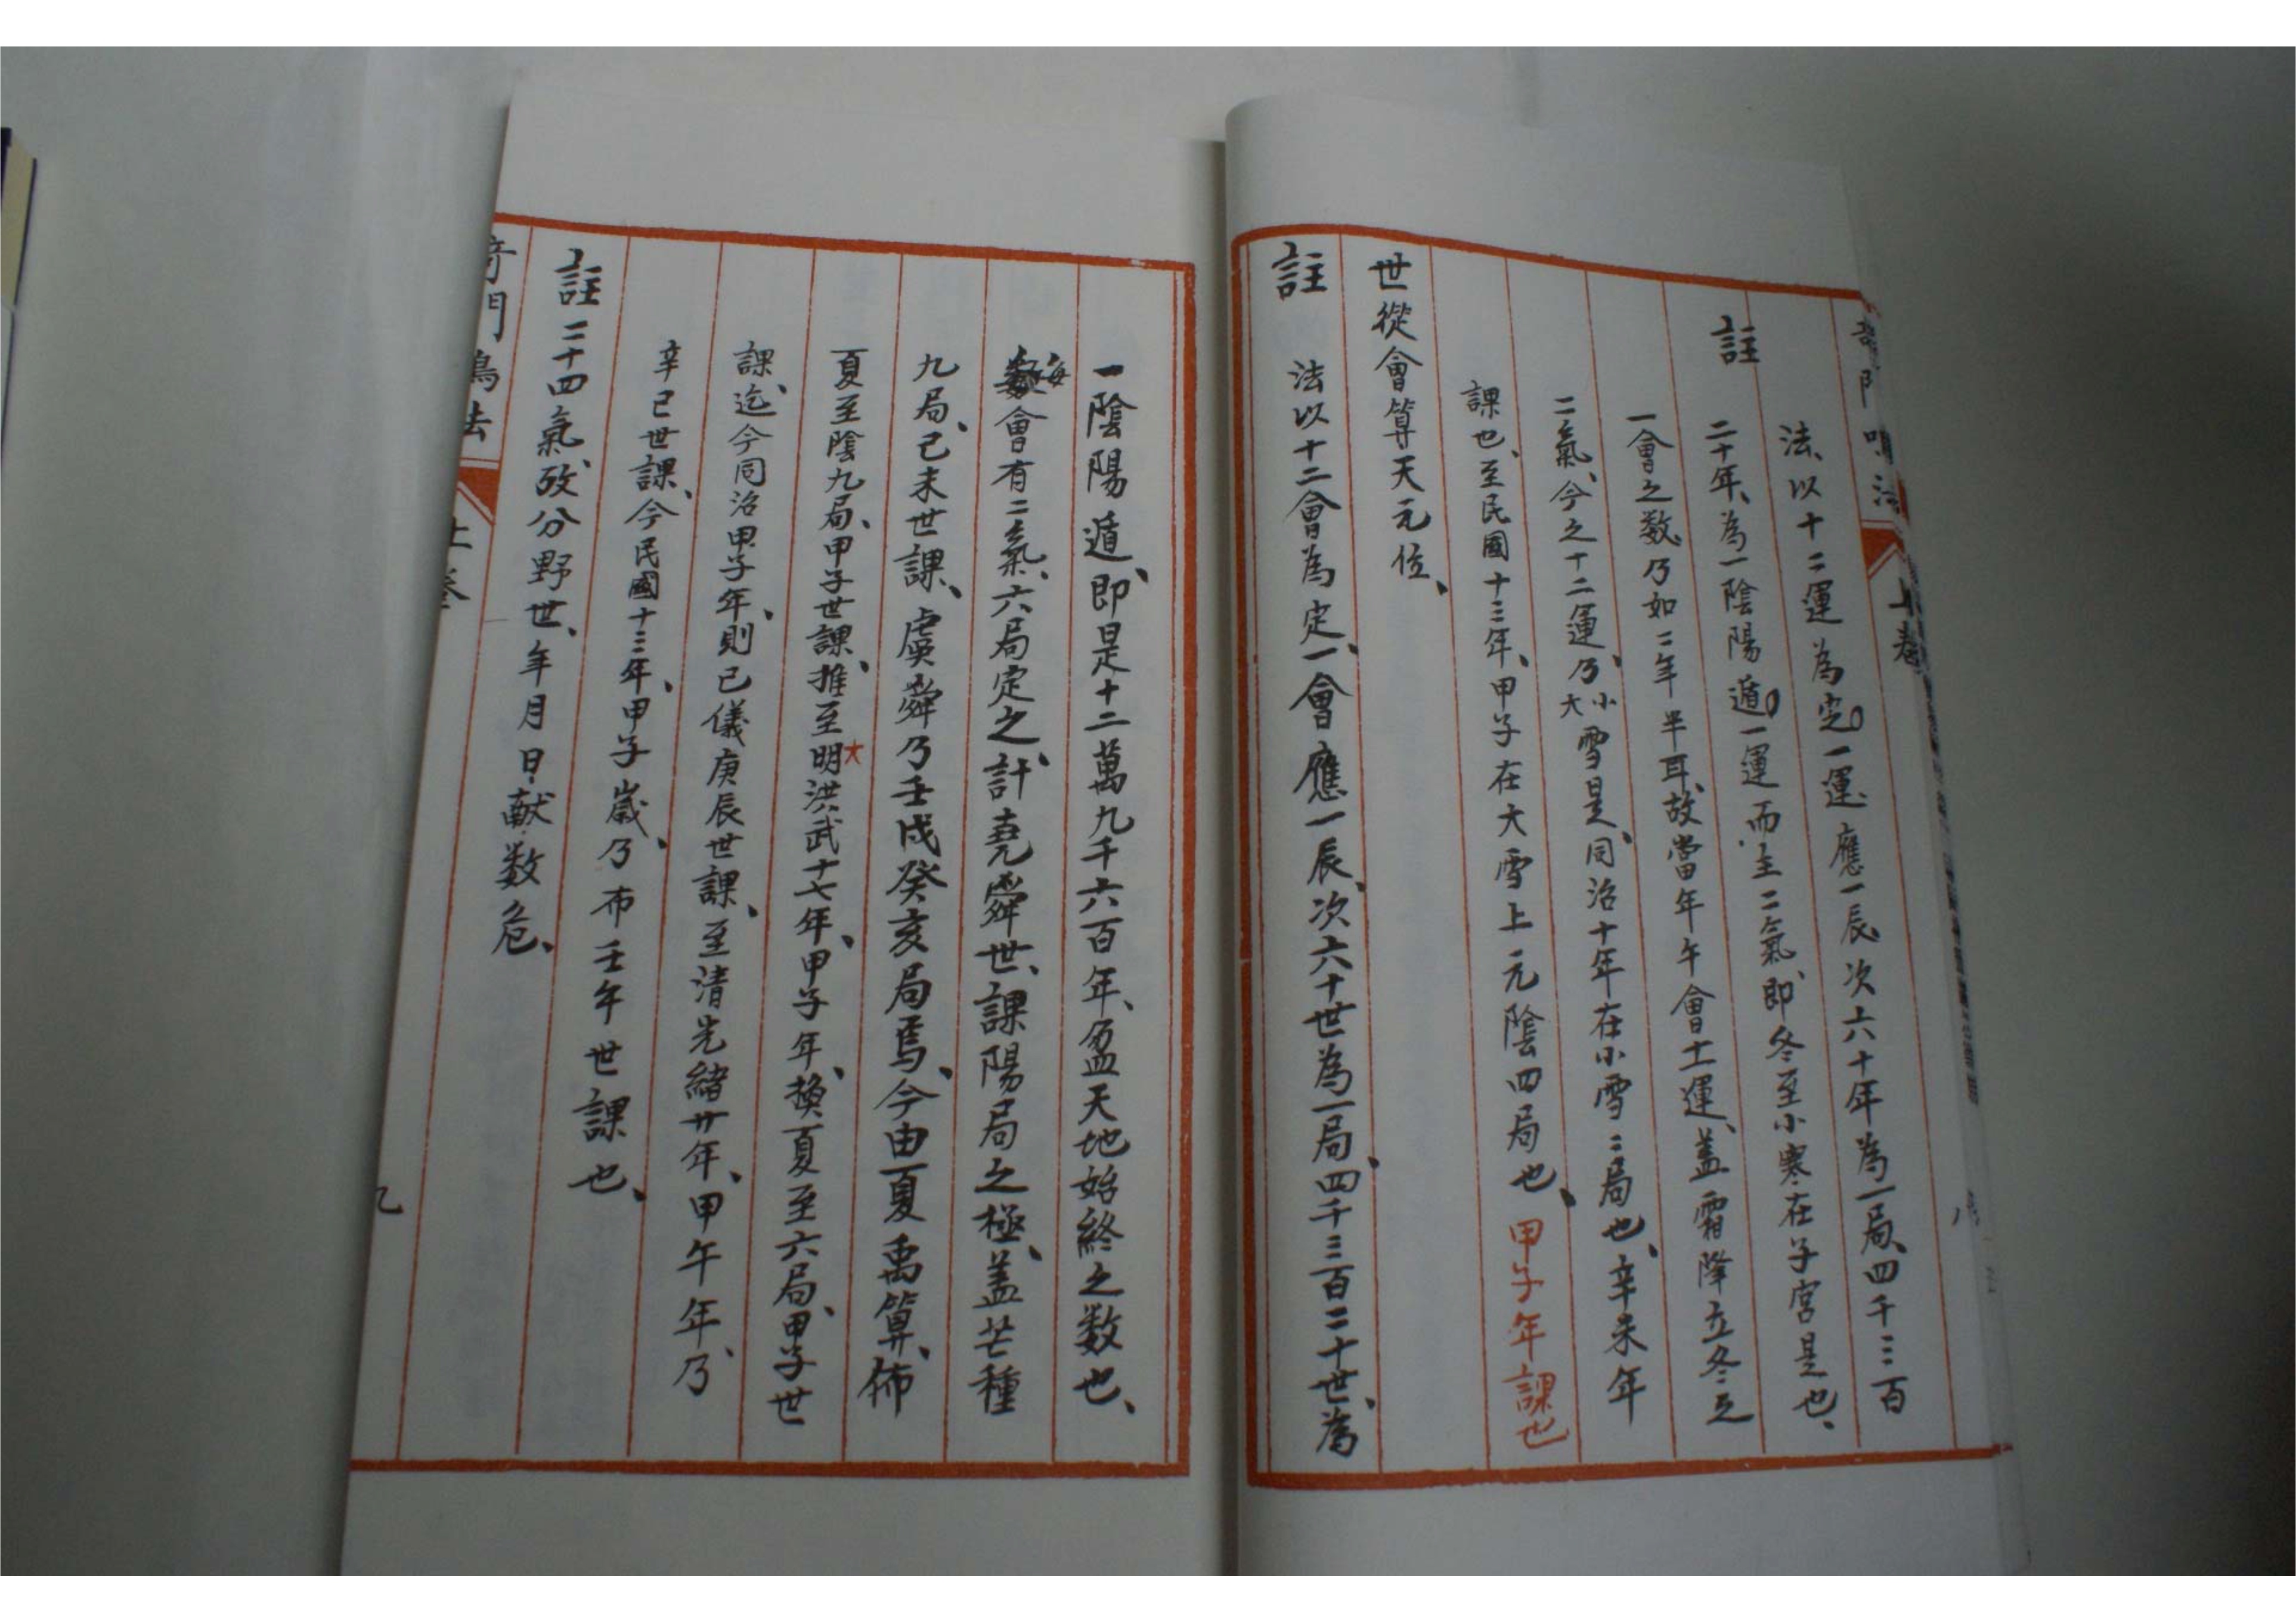 奇門鳴法
上卷
八
註
法、以十二運為定、一運應一辰、次六十年為一局、四千三百
二十年、為一陰陽遁、一運而主二氣、即冬至小寒在子宮是也、
一會之数、乃如二年半耳、故當年午會十運、蓋霜降立冬之
二氣、今之十二運、乃小大雪是、同治十年在小雪二局也、辛未年
課也、至民國十三年、甲子在大雪上元陰四局也、甲子年課也
世從會算天元位、
註 法以十二會為定、一會應一辰、次六十世為一局、四千三百二十世、為
一陰陽遁、即是十二萬九千六百年、盈天地始終之数也、
每會有二氣、六局定之、計堯舜世、課陽局之極、蓋芒種
九局、己未世課、虞舜乃壬戌癸亥局焉、今由夏禹算、佈
夏至陰九局、甲子世課、推至明洪武十七年、甲子年、換夏至六局、甲子世
課、迄今同治甲子年、則已儀庚辰世課、至清光緒廿年、甲午年、乃
辛巳世課、今民國十三年、甲子歲、乃布壬午世課也、
註 二十四氣攷分野世、年月日、献数危、
奇門鳴法
上卷
九